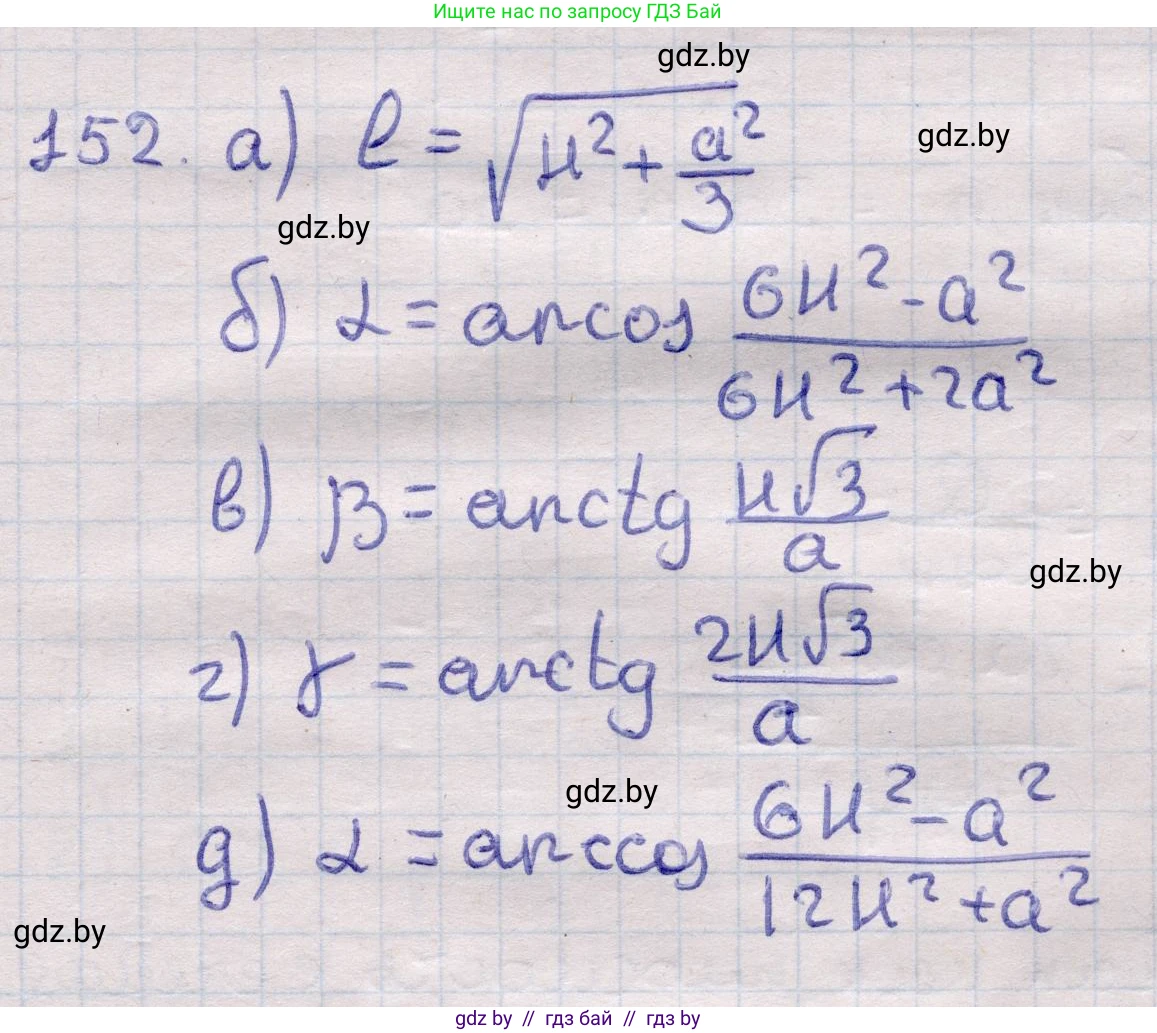 Ищите нас по запросу ГДЗ Бай
gdz.by
152. а) l = √(H² + a²/3)
gdz.by
gdz.by
б) α = arcos (6H² - a²)/(6H² + 2a²)
в) β = arctg (H√3)/a
gdz.by
г) γ = arctg (2H√3)/a
gdz.by
д) α = arccos (6H² - a²)/(12H² + a²)
gdz.by
gdz by // гдз бай // гдз by